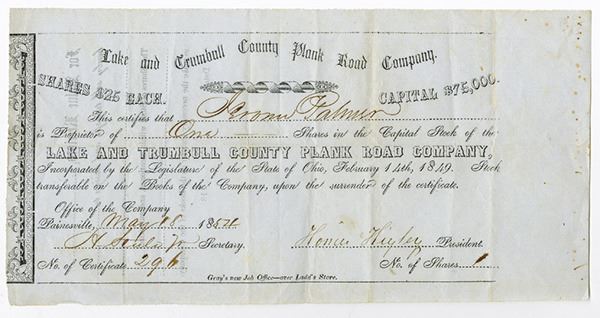 Lake and Trumbull County Plank Road Company.
SHARES $25 EACH. CAPITAL $75,000.
This certifies that Jerome Palmer
is Proprietor of One Shares in the Capital Stock of the
LAKE AND TRUMBULL COUNTY PLANK ROAD COMPANY,
Incorporated by the Legislature of the State of Ohio, February 14th, 1849. Stock
transferable on the Books of the Company, upon the surrender of the certificate.
Office of the Company
Painesville, May 18
Jr. Secretary. President.
No. of Certificate 296 No. of Shares 1
Gray's new Job Office—over Ladd's Store.